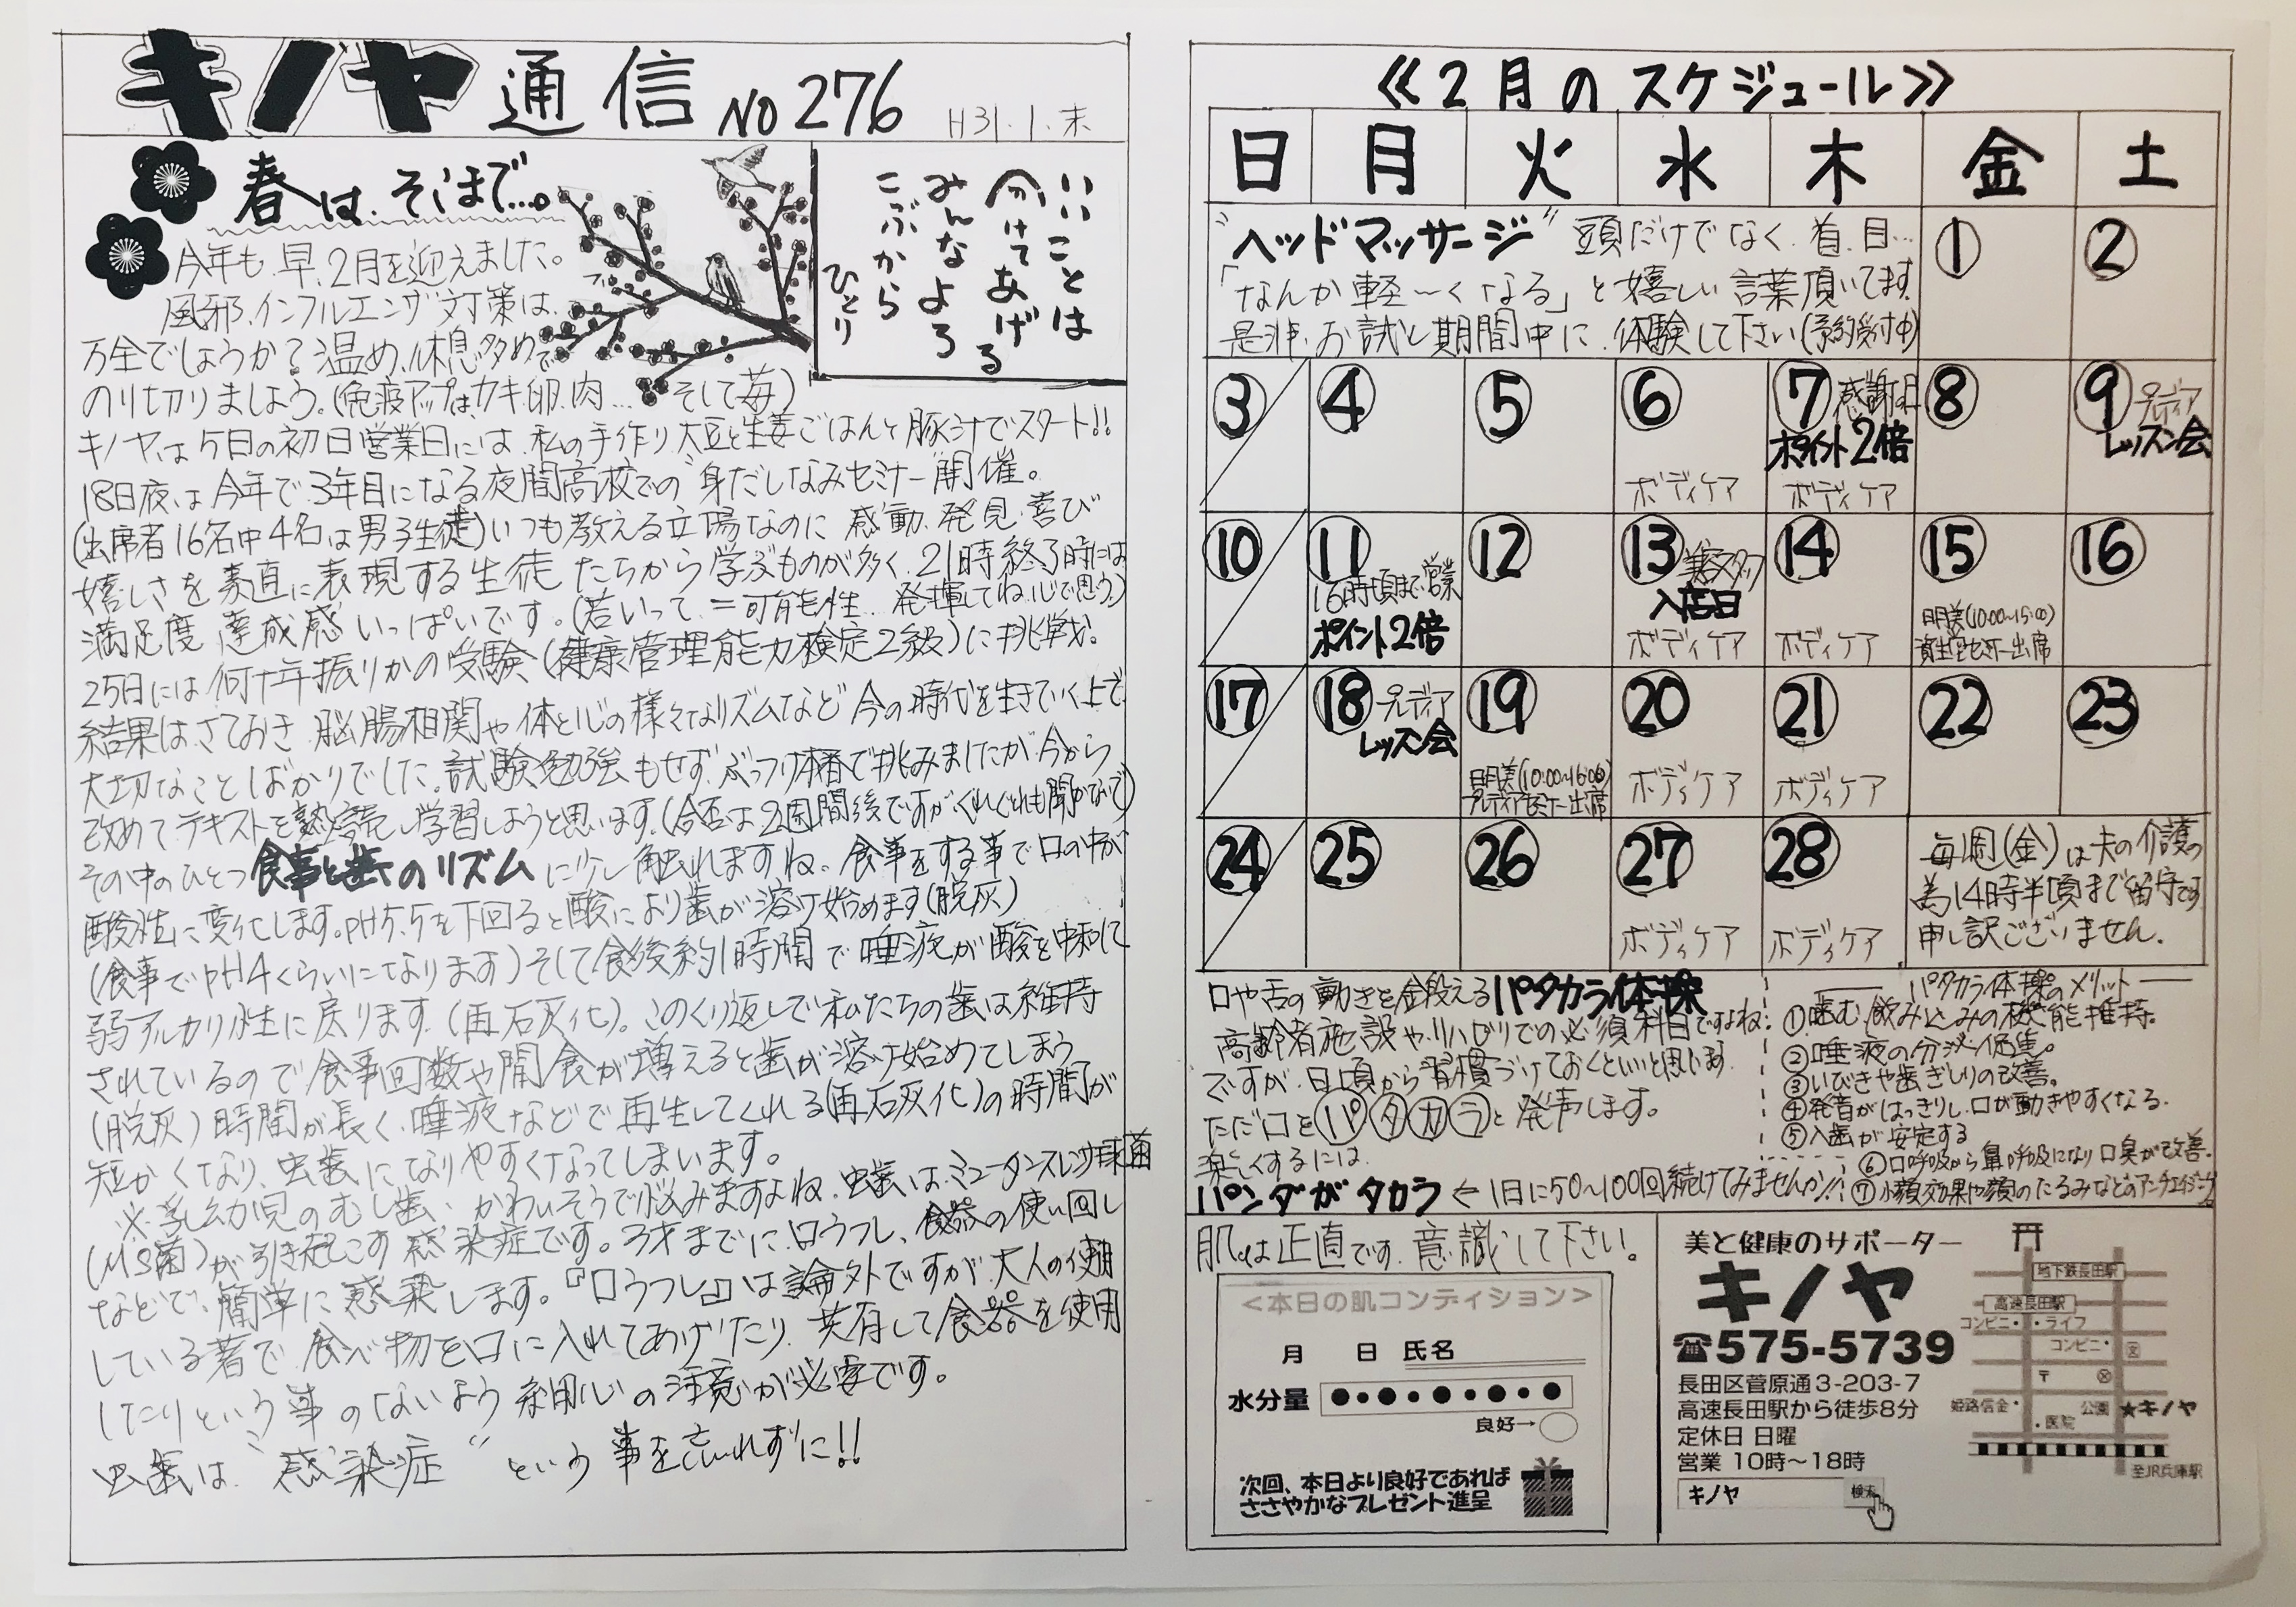 キノヤ通信 NO 276 H31.1.末
春は、そこまで…。
いいことは
分けてあげる
みんなよろ
こぶから
ひとり
今年も早、2月を迎えました。
風邪、インフルエンザ対策は、
万全でしょうか？温め、休息多めで
のり切りましょう。(免疫アップは、カキ、卵、肉…そして苺)
キノヤは5日の初日営業日には、私の手作り大豆と生姜ごはんと豚汁でスタート!!
18日夜は今年で3年目になる夜間高校での“身だしなみセミナー”開催。
(出席者16名中4名は男子生徒)いつも教える立場なのに感動、発見、喜び
嬉しさを素直に表現する生徒たちから学ぶものが多く、21時終了時には
満足度、達成感いっぱいです。(若いって、=可能性…発揮してね、心で思う。)
25日には何十年振りかの受験(健康管理能力検定2級)に挑戦。
結果はさておき、脳腸相関や体と心の様々なリズムなど今の時代を生きていく上で
大切なことばかりでした。試験勉強もせず、ぶっつけ本番で挑みましたが、今から
改めてテキストを熟読し学習しようと思います。(合否は2週間後ですがくれぐれも聞かないで)
その中のひとつ食事と歯のリズムに少し触れますね。食事をする事で口の中が
酸性に変化します。pH5.5を下回ると酸により歯が溶け始めます(脱灰)
(食事でpH4くらいになります)そして食後約1時間で唾液が酸を中和して
弱アルカリ性に戻ります。(再石灰化)。このくり返しで私たちの歯は維持
されているので食事回数や間食が増えると歯が溶け始めてしまう
(脱灰)時間が長く、唾液などで再生してくれる(再石灰化)の時間が
短かくなり、虫歯になりやすくなってしまいます。
※乳幼児のむし歯、かわいそうで悩みますよね、虫歯は、ミュータンスレンサ球菌
(MS菌)が引き起こす感染症です。3才までに口うつし、食器の使い回し
などで、簡単に感染します。『口うつし』は論外ですが、大人の使用
している箸で食べ物を口に入れてあげたり、共有して食器を使用
したりという事のないよう細心の注意が必要です。
虫歯は、“感染症”という事を忘れずに!!
≪2月のスケジュール≫
日 月 火 水 木 金 土
“ヘッドマッサージ” 頭だけでなく、首、目…
「なんか軽〜くなる」と嬉しい言葉頂いてます。
是非、お試し期間中に、体験して下さい(予約受付中)
① ②
③ ④ ⑤ ⑥ ⑦感謝日 ⑧ ⑨プレディア
ポイント2倍 レッスン会
ボディケア ボディケア
⑩ ⑪ ⑫ ⑬ ⑭ ⑮ ⑯
16時頃まで営業
ポイント2倍 入店日
ボディケア ボディケア
明美(10:00〜15:00)
資生堂セミナー出席
⑰ ⑱プレディア ⑲ ⑳ ㉑ ㉒ ㉓
レッスン会
明美(10:00〜16:00)
プレディアセミナー出席
ボディケア ボディケア
㉔ ㉕ ㉖ ㉗ ㉘
ボディケア ボディケア
毎週(金)は夫の介護の
為14時半頃まで留守です
申し訳ございません。
口や舌の動きを鍛えるパタカラ体操
高齢者施設やリハビリでの必須科目ですよね。
ですが、日頃から習慣づけておくといいと思います。
ただ口をパタカラと発声します。
楽しくするには
パンダがタカラ ← 1日に50〜100回続けてみませんか!!
パタカラ体操のメリット
①噛む、飲み込みの機能維持。
②唾液の分泌促進。
③いびきや歯ぎしりの改善。
④発音がはっきりし、口が動きやすくなる。
⑤入歯が安定する
⑥口呼吸から鼻呼吸になり口臭が改善。
⑦小顔効果や顔のたるみなどのアンチエイジング
肌は正直です。意識して下さい。
＜本日の肌コンディション＞
月 日 氏名
水分量
良好→
次回、本日より良好であれば
ささやかなプレゼント進呈
美と健康のサポーター
キノヤ
☎575-5739
長田区菅原通3-203-7
高速長田駅から徒歩8分
定休日 日曜
営業 10時〜18時
キノヤ 検索
地下鉄長田駅
高速長田駅
コンビニ・ ・ライフ
コンビニ・
〒
姫路信金・ 公園 ★キノヤ
・医院
至JR兵庫駅